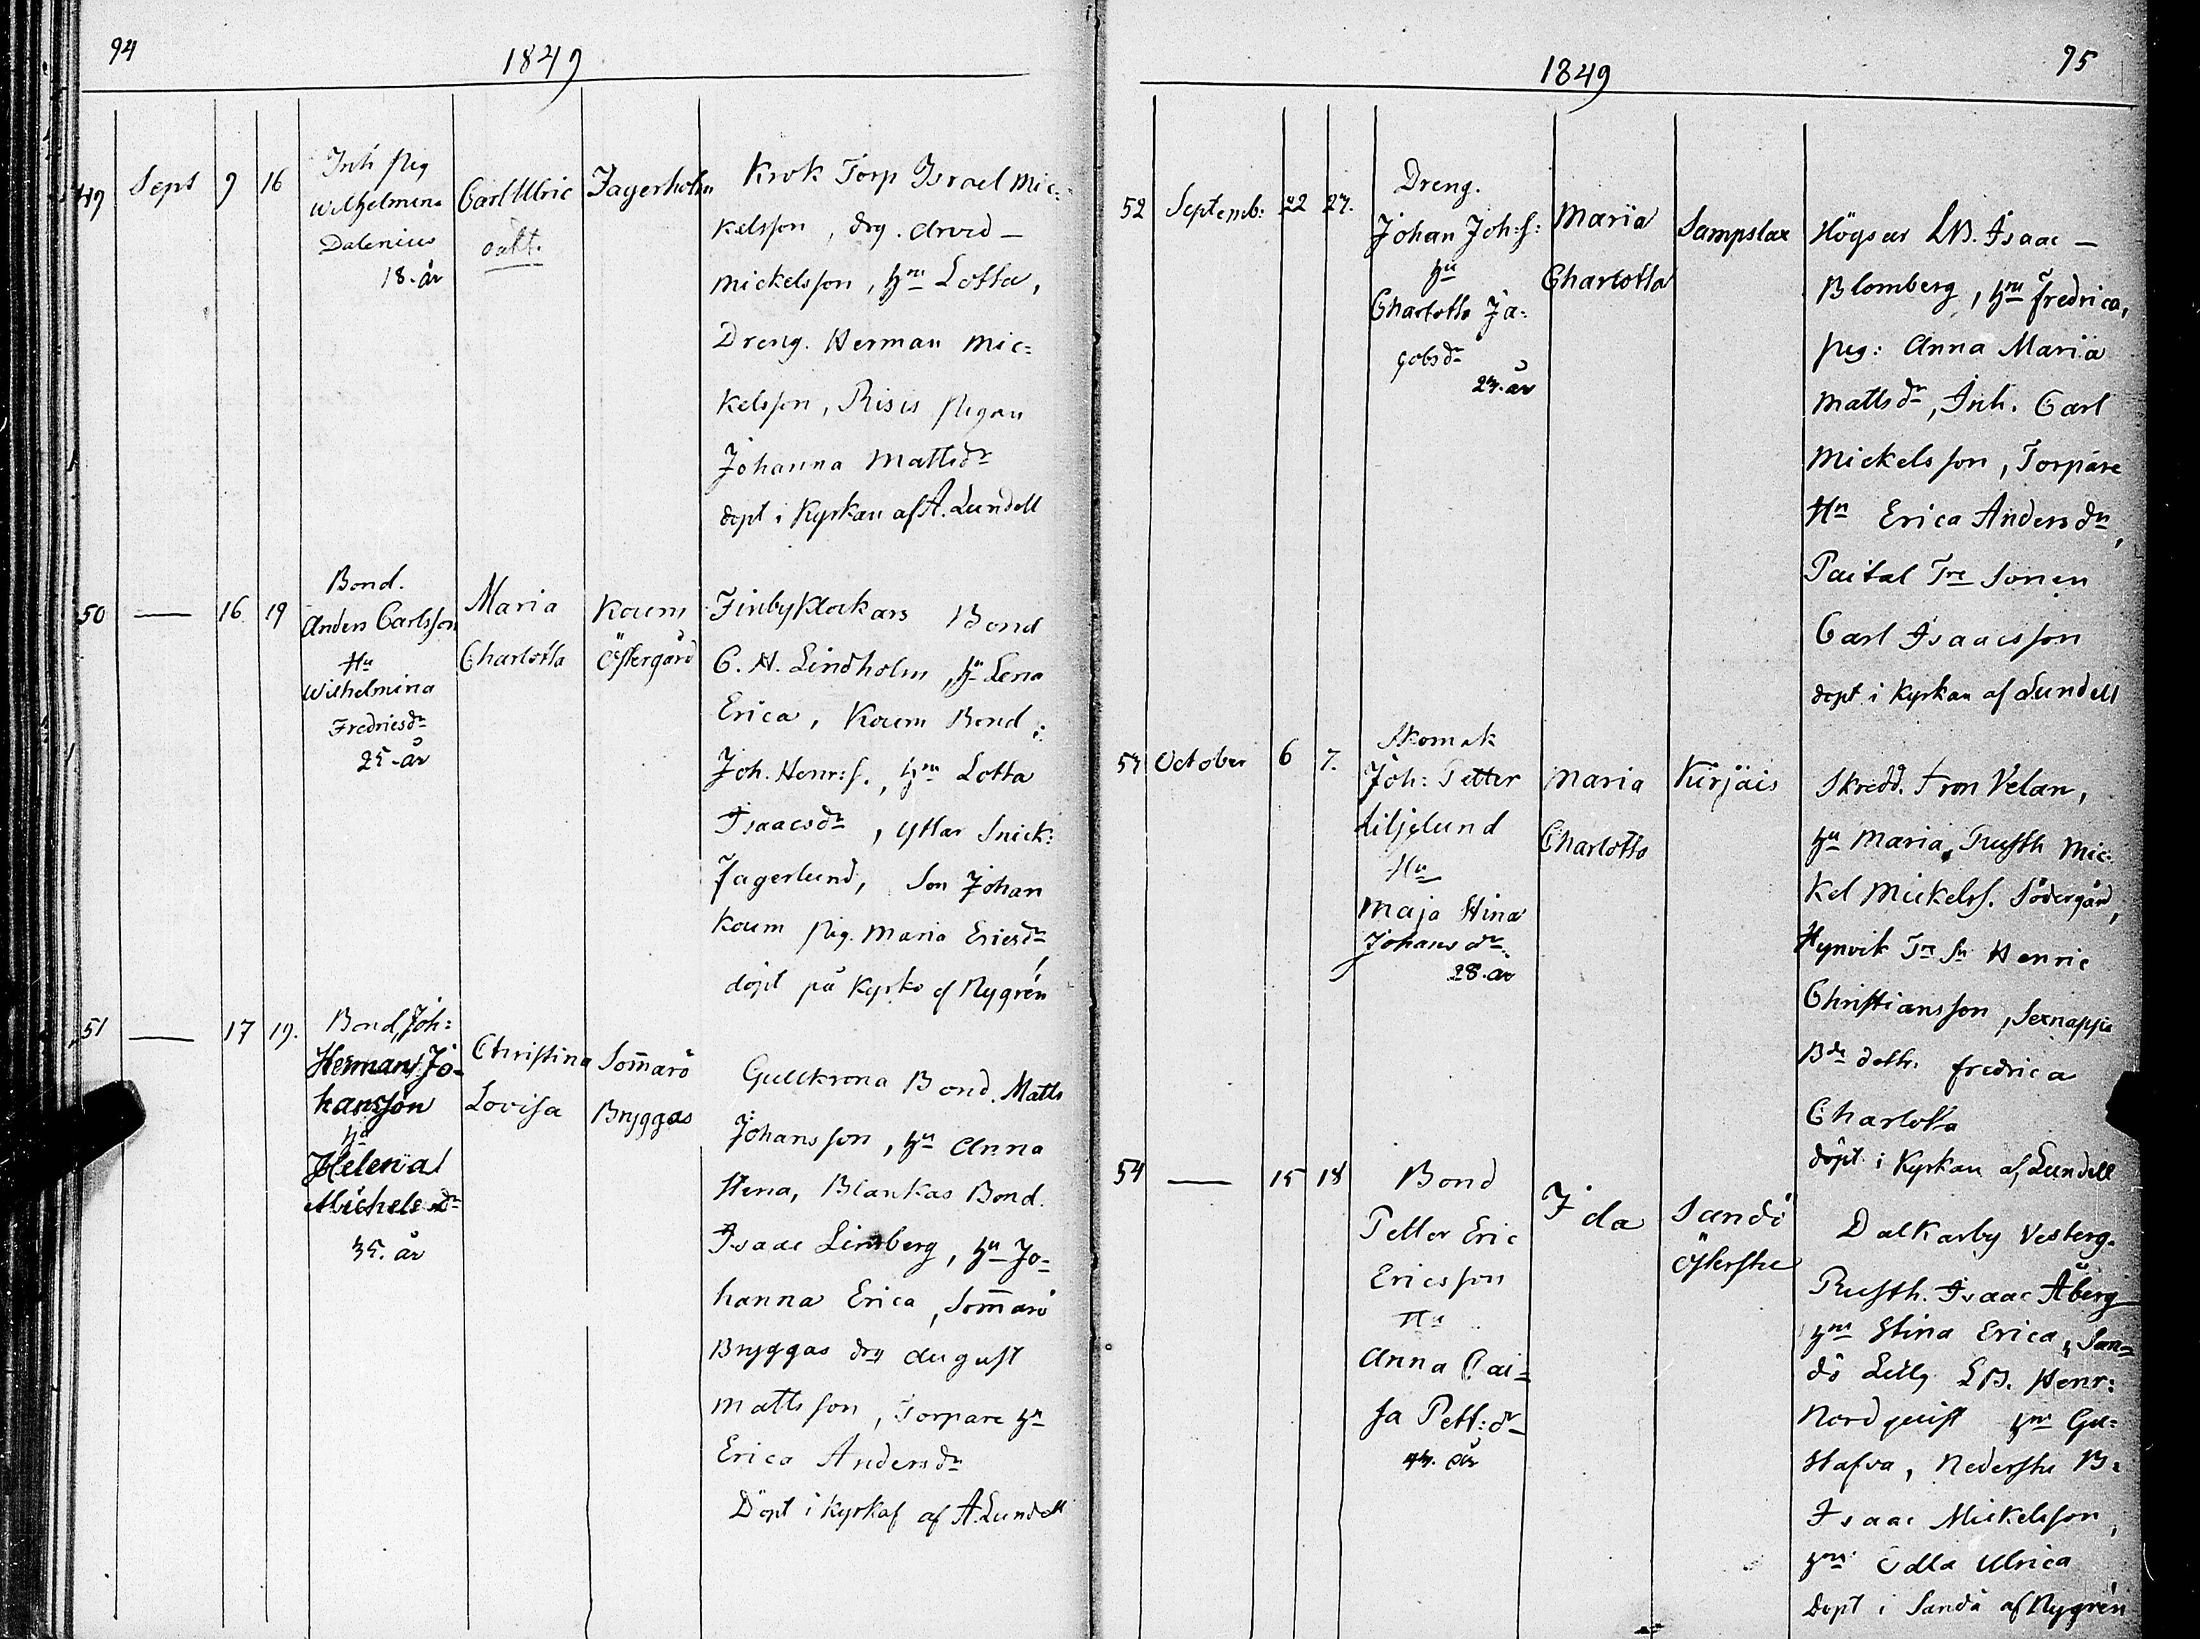 94
1849
49 Sept 9 16
Inh Pig
Wilhelmina
Dalenius
18. år
Carl Ulric
oäkt.
Jagerholm
Krok Torp Israel Mic=
kelsson, drg. Arvid
Mickelsson, hu Lotta,
Dreng. Herman Mic=
kelsson, Risis Pigan
Johanna Mattsdr
döpt i Kyrkan af A. Lundell
50 — 16 19
Bond.
Anders Carlsson
Hu
Wilhelmina
Fredricsdr
25. år
Maria
Charlotta
Koum
Östergård
Finby Klockars Bond
C. H. Lindholm, hu Lena
Erica, Koum Bond:
Joh. Henr:s., hu Lotta
Isaacsdr, Yttar Snick:
Jagerlund, Son Johan
Koum Pig. Maria Ericsdr,
döpt på Kyrko af Nygrén
51 — 17 19.
Bond, Joh:
Herman Jo=
hansson
hu
Helena
Michelsdr
35. år
Christina
Lovisa
Sommarö
Bryggas
Gullkrona Bond. Matts
Johansson, hu Anna
Stina, Blankas Bond.
Isaac Limberg, hu Jo=
hanna Erica, Sommarö
Bryggas drg August
Mattsson, Torpare hu
Erica Andersdr
Döpt i Kyrkaf af A. Lundell
95
1849
52 Septemb: 22 23.
Dreng.
Johan Joh:s:
hu
Charlotta Ja=
cobsdr
23. år
Maria
Charlotta
Sampslax
Högsar LB. Isaac
Blomberg, hu Fredrica,
Pig: Anna Maria
Mattsdr, Inh. Carl
Mickelsson, Torpare
Hu Erica Andersdr,
Paital Tre Sonen
Carl Isaacsson
döpt i Kyrkan af Lundell
53 October 6 7.
Skomak
Joh: Petter
Liljelund
Hu
Maja Stina
Johansdr
28. år
Maria
Charlotta
Kirjais
Skredd. Fron Velan,
hu Maria, Rusth Mic:
kel Mickelss. Södergård,
Hynvik Tre Sn Henric
Christiansson, Sexnappa
Bde dottr. Fredrica
Charlotta
döpt i Kyrkan af Lundell
54 — 15 18
Bond
Petter Eric
Ericsson
Hu
Anna Cai=
sa Pett:dr
43. år
Ida
Sandö
Österste
Dalkarby Vesterg.
Rusth. Isaac Åberg
hu Stina Erica, San=
dö Lillg LB. Henr:
Nordquist hu Gu=
stafva, Nederste B:
Isaac Mickelsson,
hu Edla Ulrica
Döpt i Sandö af Nygrén